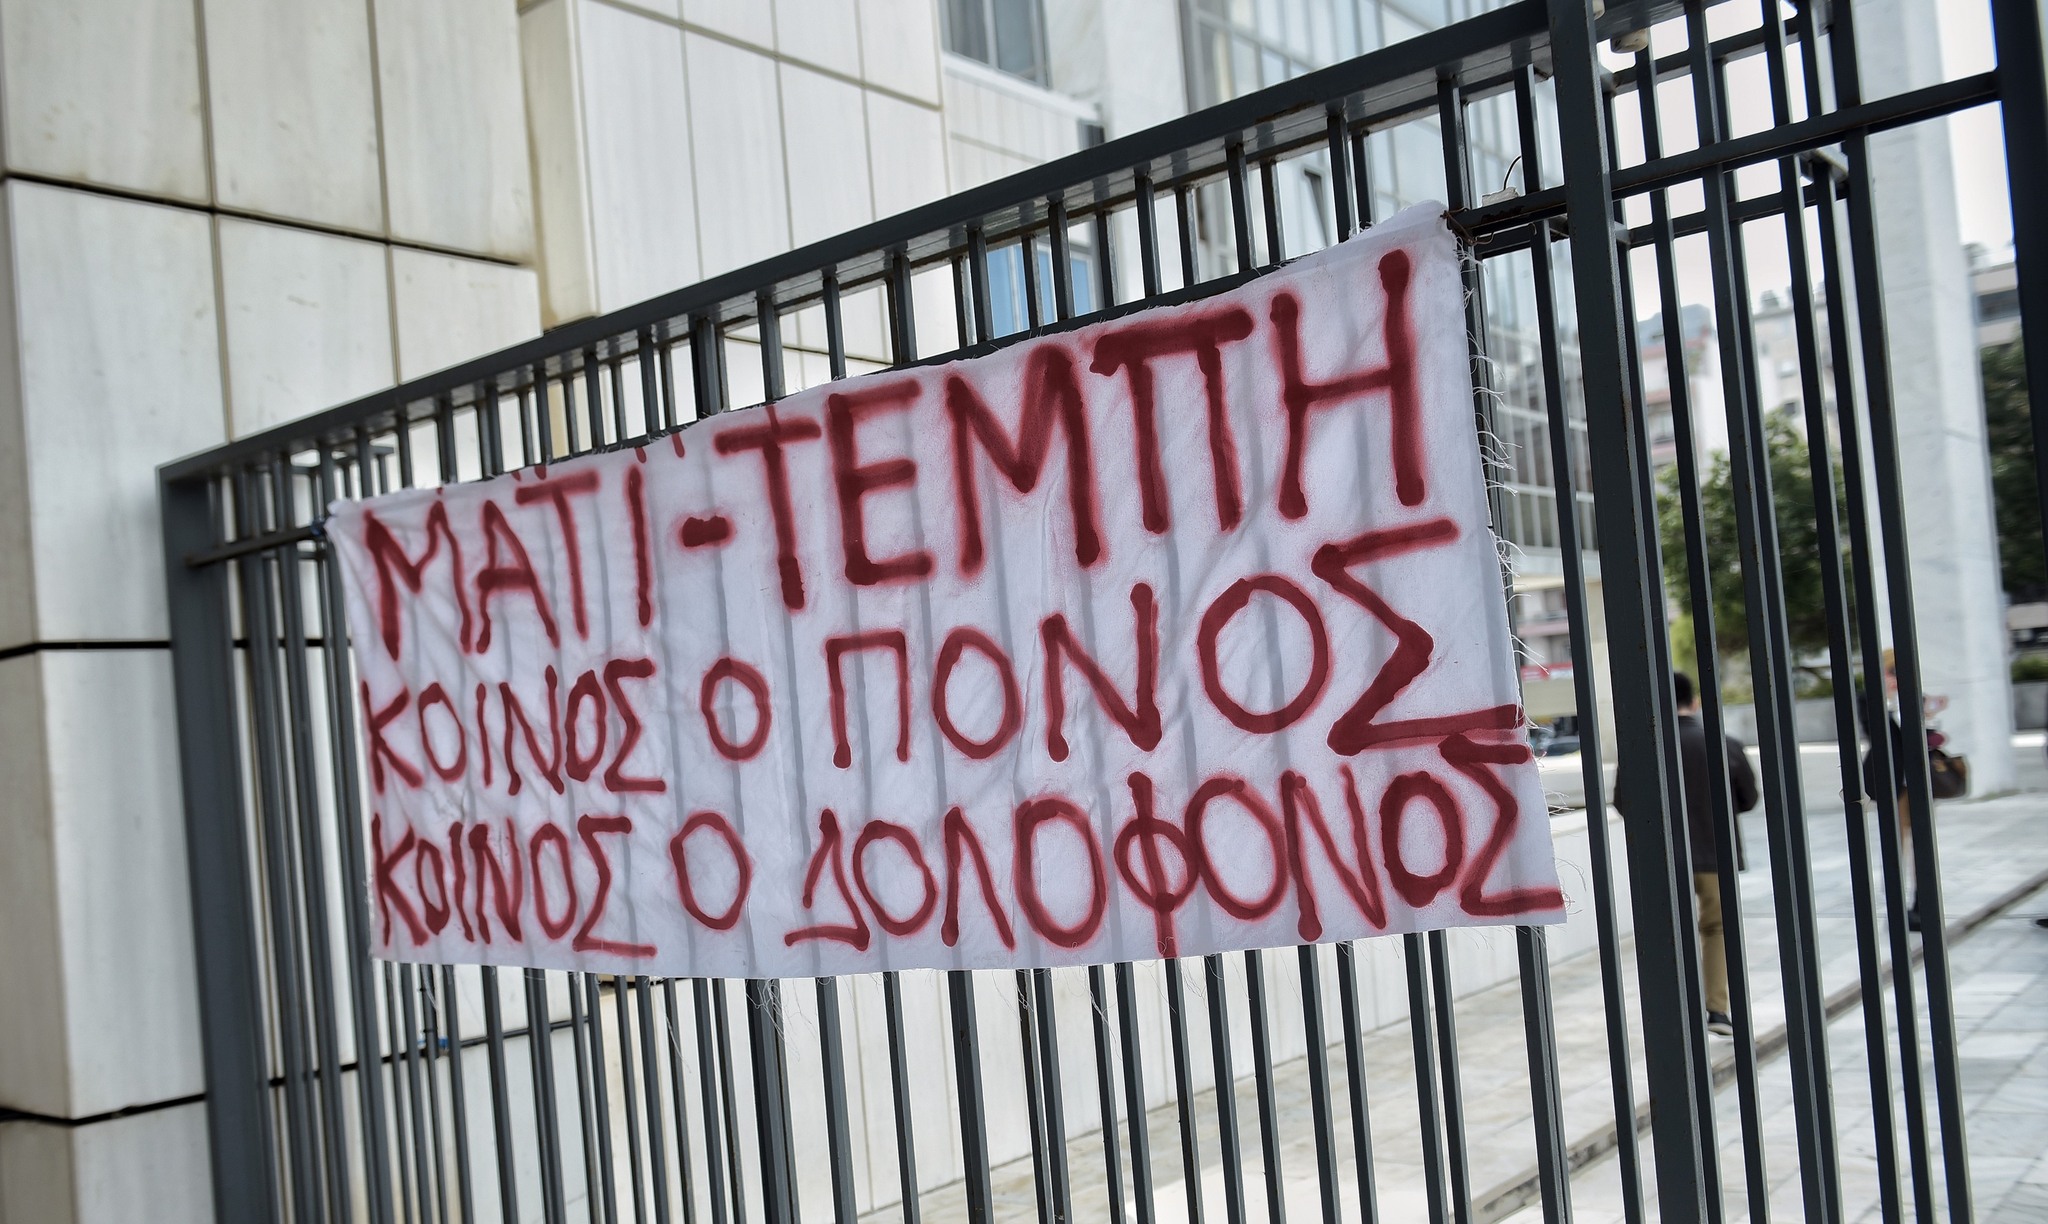 ΜΑΤΙ-ΤΕΜΠΗ
ΚΟΙΝΟΣ Ο ΠΟΝΟΣ
ΚΟΙΝΟΣ Ο ΔΟΛΟΦΟΝΟΣ